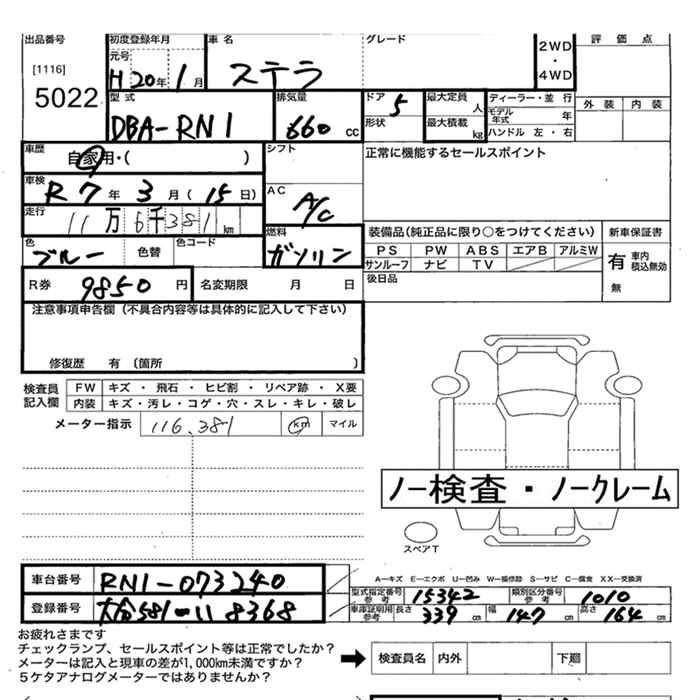 出品番号 初度登録年月 車名 グレード 2WD・4WD 評価点
[1116] 元号
5022 H20年1月 ステラ
型式 排気量 ドア 5 最大定員 人 ディーラー・並行 外装 内装
DBA-RN1 660cc 形状 最大積載 kg モデル年式 年
ハンドル 左・右
車歴 自家用・( ) シフト 正常に機能するセールスポイント
車検 R7年3月(15日) AC A/C
走行 11万6千381km 燃料 装備品(純正品に限り○をつけてください) 新車保証書
色 ブルー 色替 色コード ガソリン PS PW ABS エアB アルミW 有 車内積込無効
サンルーフ ナビ TV
R券 9850円 名変期限 月 日 後日品 無
注意事項申告欄(不具合内容等は具体的に記入して下さい)
修復歴 有 (箇所 )
検査員記入欄 FW キズ・飛石・ヒビ割・リペア跡・X要
内装 キズ・汚レ・コゲ・穴・スレ・キレ・破レ
メーター指示 116,381 km マイル
ノー検査・ノークレーム
スペアT
車台番号 RN1-073240 A-キズ E-エクボ U-凹み W-補修跡 S-サビ C-腐食 XX-交換済
型式指定番号 参考 15342 類別区分番号 参考 1010
登録番号 大分581-い8368 車庫証明用 参考 長さ 339cm 幅 147cm 高さ 164cm
お疲れさまです
チェックランプ、セールスポイント等は正常でしたか?
メーターは記入と現車の差が1,000km未満ですか?
5ケタアナログメーターではありませんか?
検査員名 内外 下廻